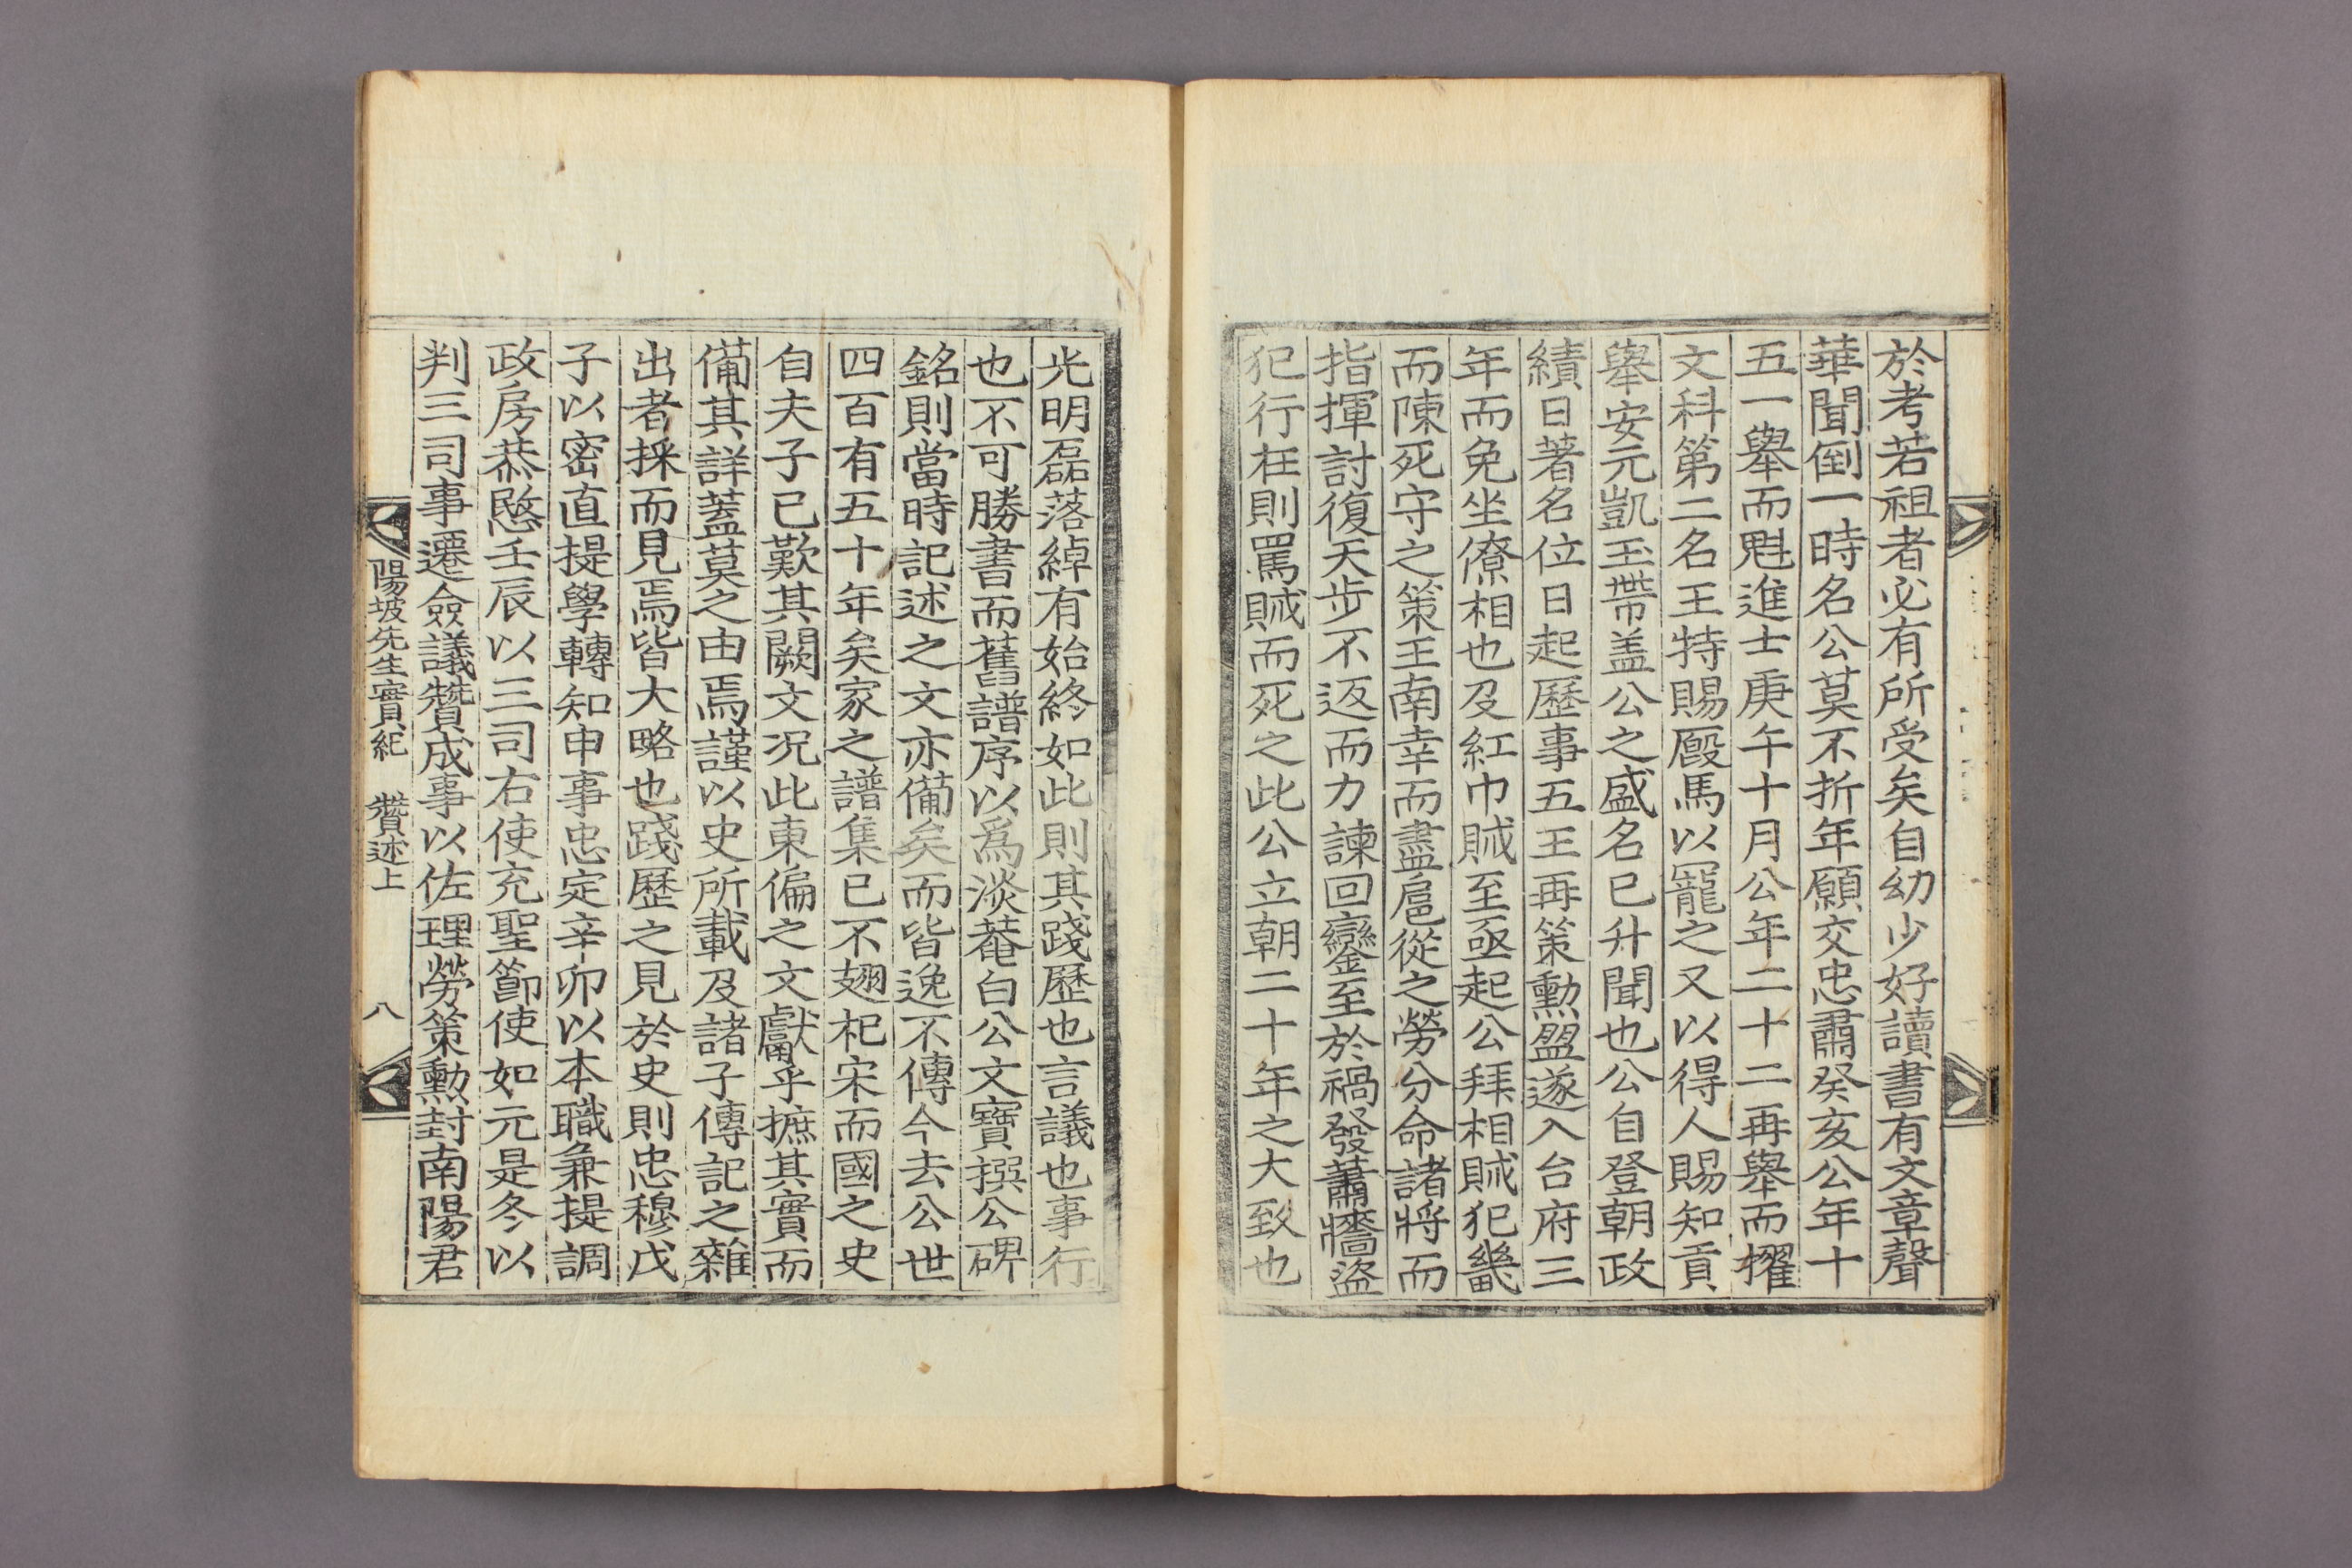 於考若祖者必有所受矣自幼少好讀書有文章聲
華聞倒一時名公莫不折年願交忠肅癸亥公年十
五一擧而魁進士庚午十月公年二十二再擧而擢
文科第二名王特賜廐馬以寵之又以得人賜知貢
擧安元凱玉帶盖公之盛名已升聞也公自登朝政
績日著名位日起歷事五王再策勳盟遂入台府三
年而免坐僚相也及紅巾賊至亟起公拜相賊犯畿
而陳死守之策王南幸而盡扈從之勞分命諸將而
指揮討復天步不返而力諫回鑾至於禍發蕭牆盜
犯行在則罵賊而死之此公立朝二十年之大致也
光明磊落綽有始終如此則其踐歷也言議也事行
也不可勝書而舊譜序以爲淡菴白公文寶撰公碑
銘則當時記述之文亦備矣而皆逸不傳今去公世
四百有五十年矣家之譜集已不翅杞宋而國之史
自夫子已歎其闕文况此東偏之文獻乎摭其實而
備其詳蓋莫之由焉謹以史所載及諸子傳記之雜
出者採而見焉皆大略也踐歷之見於史則忠穆戊
子以密直提學轉知申事忠定辛卯以本職兼提調
政房恭愍壬辰以三司右使充聖節使如元是冬以
判三司事遷僉議贊成事以佐理勞策勳封南陽君
陽坡先生實紀 贊述上 八